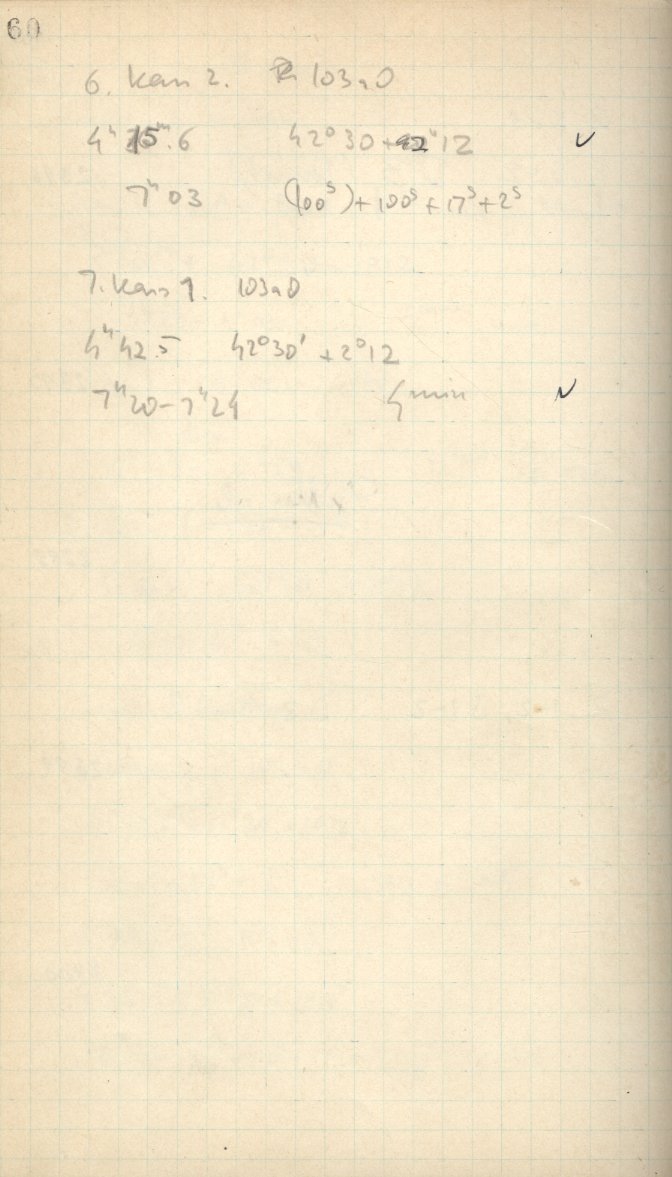 60
6. Kas 2. 103a0
4ʰ 15ᵐ.6 42°30 + 2°12 ✓
7ʰ 03 (100ˢ) + 100ˢ + 17ˢ + 2ˢ
7. Kas 1. 103a0
4ʰ 42.5 42°30' + 2°12
7ʰ20 – 7ʰ24 4 min ✓